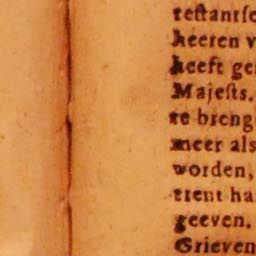 teſtantſe
heeren v
heeft ge
Majeſts.
te breng
meer als
worden,
trent ha
geeven.
Grieven